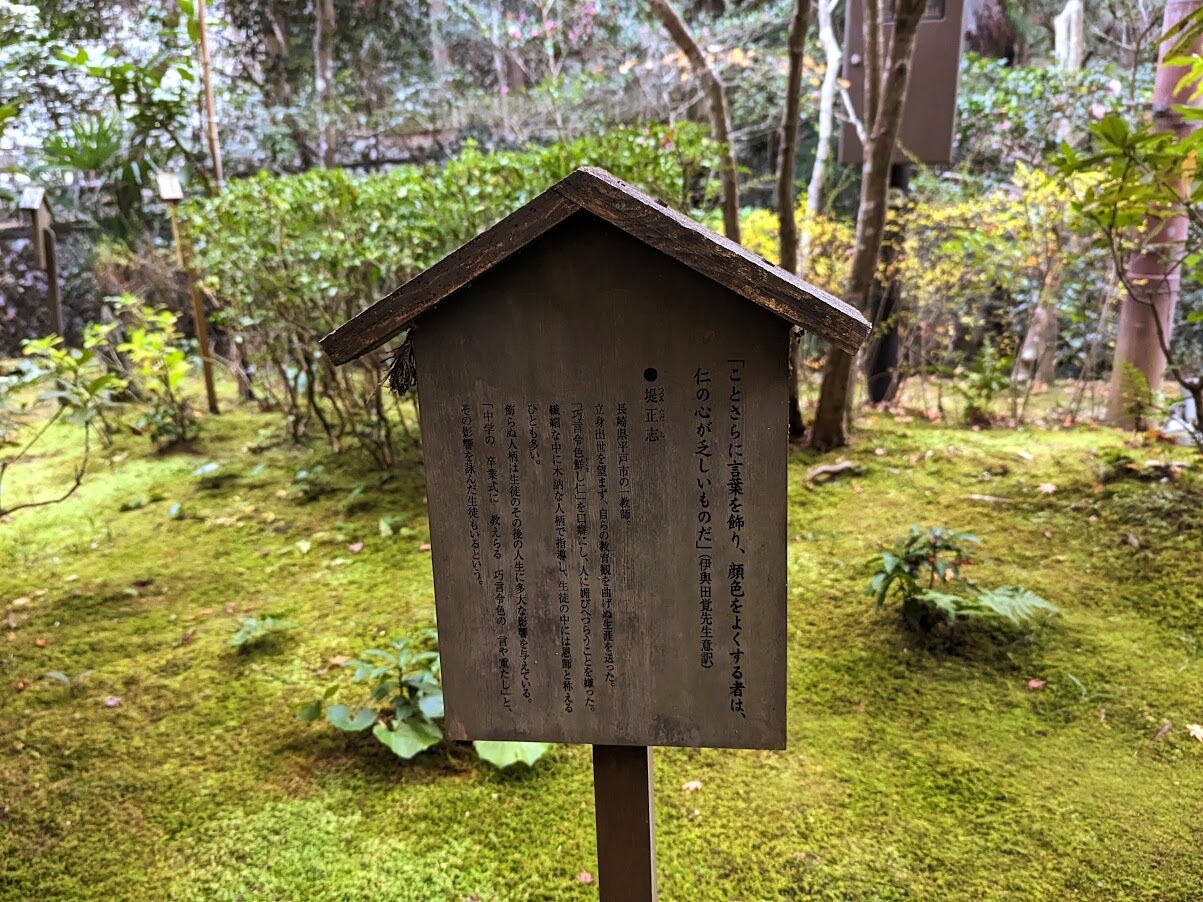 「ことさらに言葉を飾り、顔色をよくする者は、
仁の心が乏しいものだ」(伊與田覚先生意訳)
●堤正志
長崎県平戸市の一教師。
立身出世を望まず、自らの教育観を曲げぬ生涯を送った。
「巧言令色鮮し仁」を口癖にし、人に媚びへつらうことを嫌った。
繊細な中に木訥な人柄で指導し、生徒の中には恩師と称える
ひとも多い。
飾らぬ人柄は生徒のその後の人生に多大な影響を与えている。
「中学の 卒業式に 教えらる 巧言令色の 言や重たし」と、
その影響を詠んだ生徒もいるという。